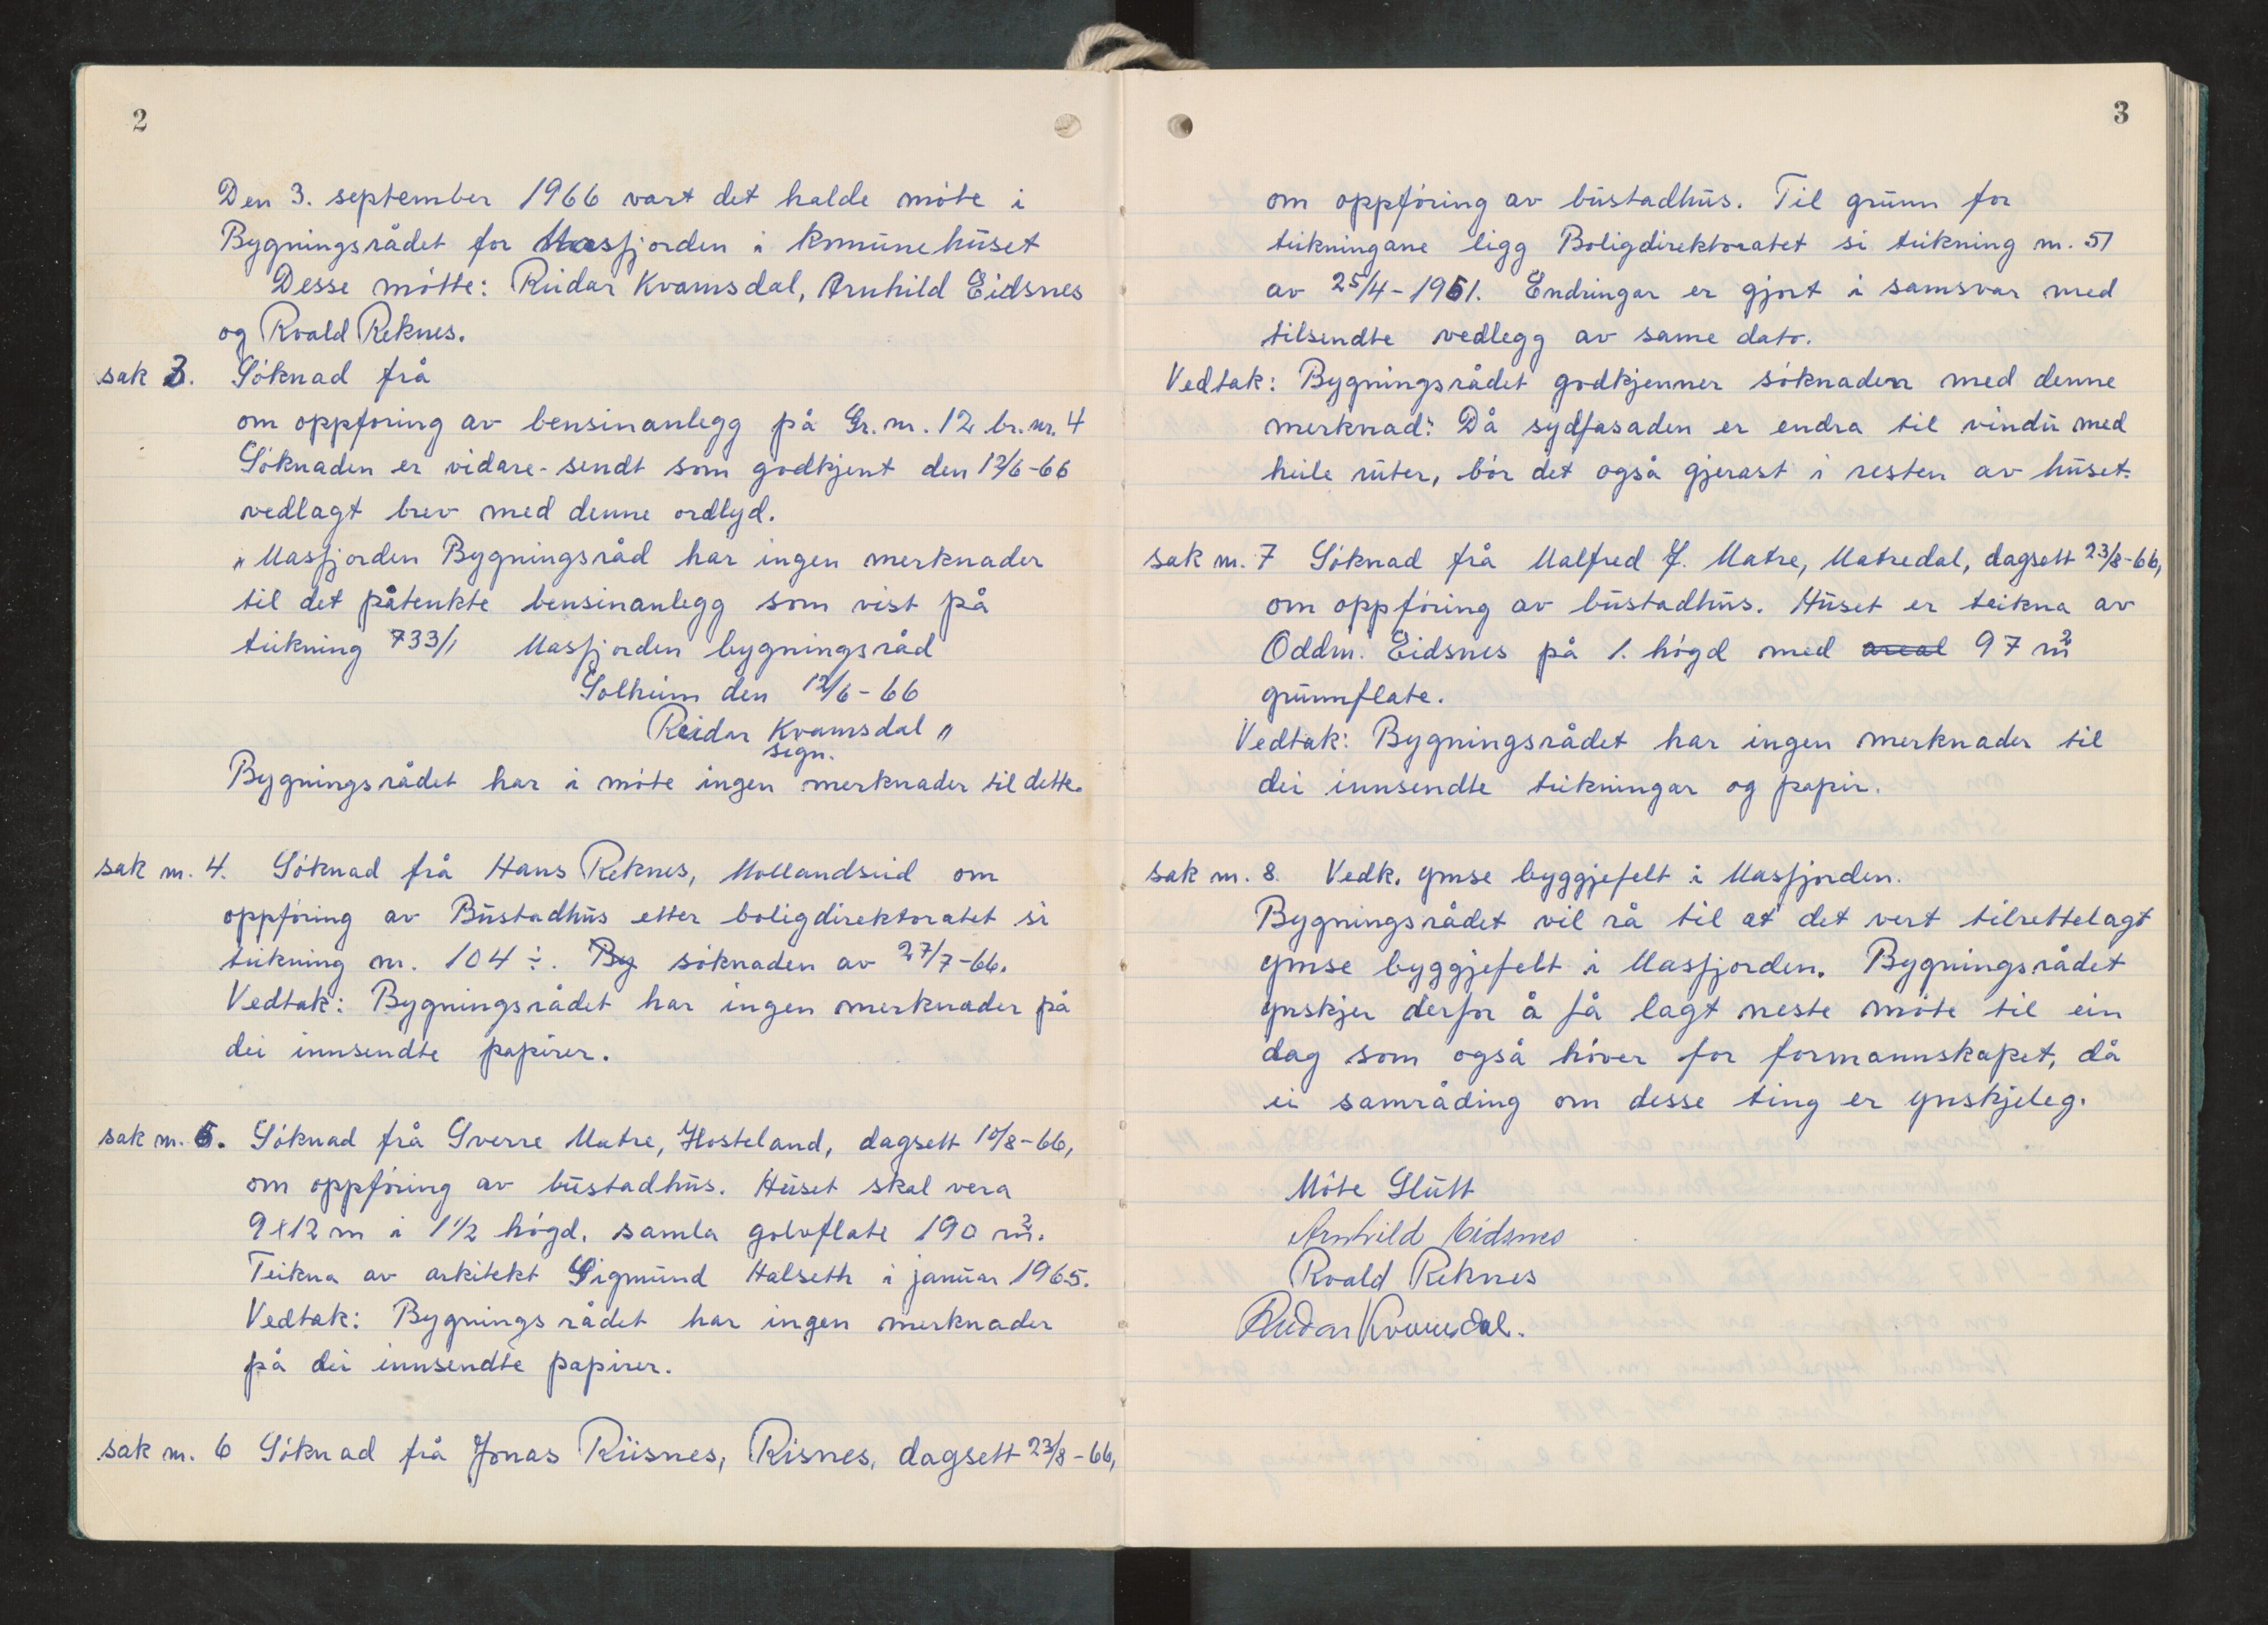 2
Den 3. september 1966 vart det halde møte i
Bygningsrådet for Masfjorden i komunehuset
Desse møtte: Reidar Kvamsdal, Arnhild Eidsnes
og Roald Reknes.
sak 3. Søknad frå
om oppføring av bensinanlegg på Gr. nr. 12 br. nr. 4
Søknaden er vidare-sendt som godkjent den 12/6-66
vedlagt brev med denne ordlyd.
„Masfjorden Bygningsråd har ingen merknader
til det påtenkte bensinanlegg som vist på
teikning 733/1 Masfjorden bygningsråd
Solheim den 12/6-66
Reidar Kvamsdal "
sign.
Bygningsrådet har i møte ingen merknader til dette.
sak nr. 4. Søknad frå Hans Reknes, Mollandseid om
oppføring av Bustadhus etter boligdirektoratet si
teikning nr. 104 ÷. By søknaden av 27/7-66.
Vedtak: Bygningsrådet har ingen merknader på
dei innsendte papirer.
sak nr. 5. Søknad frå Sverre Matre, Hosteland, dagsett 10/8-66,
om oppføring av bustadhus. Huset skal vera
9x12 m i 1 1/2 høgd. samla golvflate 190 m².
Teikna av arkitekt Sigmund Halseth i januar 1965.
Vedtak: Bygningsrådet har ingen merknader
på dei innsendte papirer.
sak nr. 6 Søknad frå Jonas Riisnes, Risnes, dagsett 23/8-66,
3
om oppføring av bustadhus. Til grunn for
teikningane ligg Boligdirektoratet si teikning nr. 51
av 25/4-1951. Endringar er gjort i samsvar med
tilsendte vedlegg av same dato.
Vedtak: Bygningsrådet godkjenner søknaden med denne
merknad: Då sydfasaden er endra til vindu med
heile ruter, bør det også gjerast i resten av huset.
sak nr. 7 Søknad frå Malfred J. Matre, Matredal, dagsett 23/8-66,
om oppføring av bustadhus. Huset er teikna av
Oddm. Eidsnes på 1. høgd med areal 97 m²
grunnflate.
Vedtak: Bygningsrådet har ingen merknader til
dei innsendte teikningar og papir.
sak nr. 8. Vedk. ymse byggjefelt i Masfjorden.
Bygningsrådet vil rå til at det vert tilrettelagt
ymse byggjefelt i Masfjorden. Bygningsrådet
ynskjer derfor å få lagt neste møte til ein
dag som også høver for formannskapet, då
ei samråding om desse ting er ynskjeleg.
Møte Slutt
Arnhild Eidsnes
Roald Reknes
Reidar Kvamsdal.